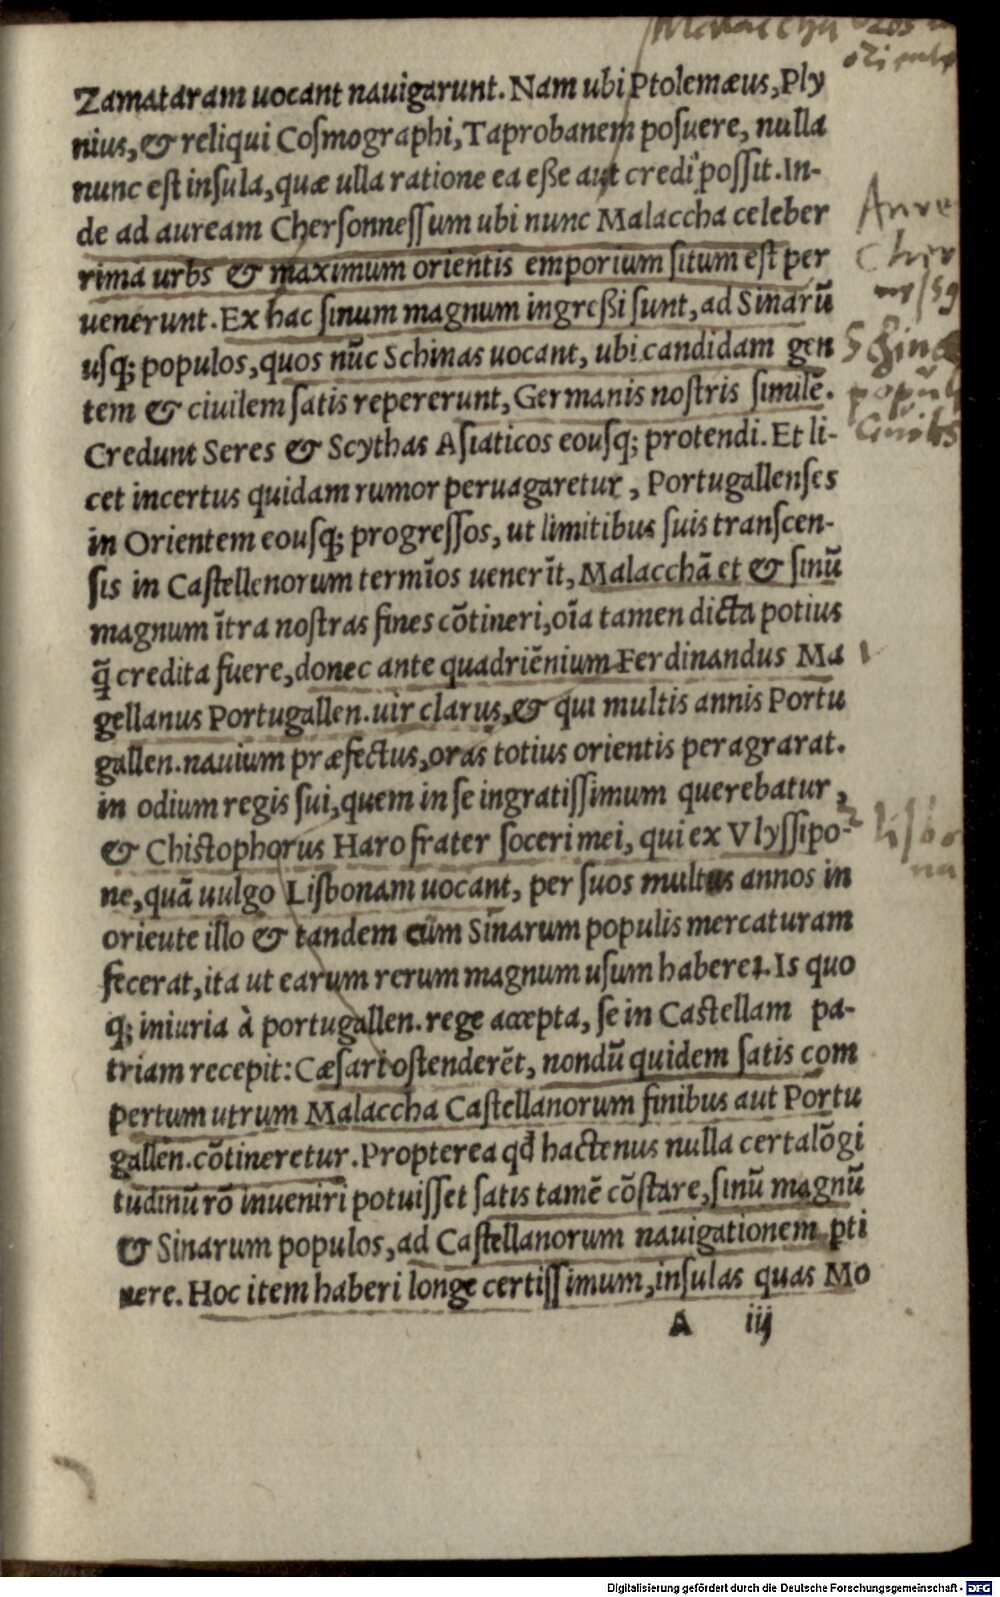 Malaccha
oriente
Zamataram uocant nauigarunt. Nam ubi Ptolemæus, Ply
nius, & reliqui Coſmographi, Taprobanem poſuere, nulla
nunc eſt inſula, quæ ulla ratione ea eſſe aut credi poſſit. In-
de ad auream Cherſonneſſum ubi nunc Malaccha celeber
rima urbs & maximum orientis emporium ſitum eſt per
uenerunt. Ex hac ſinum magnum ingreßi ſunt, ad Sinarū
uſq; populos, quos nūc Schinas uocant, ubi candidam gen
tem & ciuilem ſatis repererunt, Germanis noſtris ſimilē.
Credunt Seres & Scythas Aſiaticos eouſq; protendi. Et li-
cet incertus quidam rumor peruagaretur, Portugallenſes
in Orientem eouſq; progreſſos, ut limitibus ſuis tranſcen-
ſis in Caſtellenorum termīos uenerīt, Malacchā et & ſinū
magnum ītra noſtras fines cōtineri, oīa tamen dicta potius
q̄ credita fuere, donec ante quadriēnium Ferdinandus Ma
gellanus Portugallen. uir clarus, & qui multis annis Portu
gallen. nauium præfectus, oras totius orientis peragrarat.
in odium regis ſui, quem in ſe ingratiſſimum querebatur,
& Chiſtophorus Haro frater ſoceri mei, qui ex Vlyſſipo-
ne, quā uulgo Liſbonam uocant, per ſuos multos annos in
orieute illo & tandem cūm Sinarum populis mercaturam
fecerat, ita ut earum rerum magnum uſum haberet. Is quo
q; iniuria à portugallen. rege accepta, ſe in Caſtellam pa-
triam recepit: Cæſari oſtenderēt, nondū quidem ſatis com
pertum utrum Malaccha Caſtellanorum finibus aut Portu
gallen. cōtineretur. Propterea qd̄ hactenus nulla certa lōgi
tudinū rō inueniri potuiſſet ſatis tamē cōſtare, ſinū magnū
& Sinarum populos, ad Caſtellanorum nauigationem pti
nere. Hoc item haberi longe certiſſimum, inſulas quas Mo
A iij
Schinæ
Digitalisierung gefördert durch die Deutsche Forschungsgemeinschaft - DFG